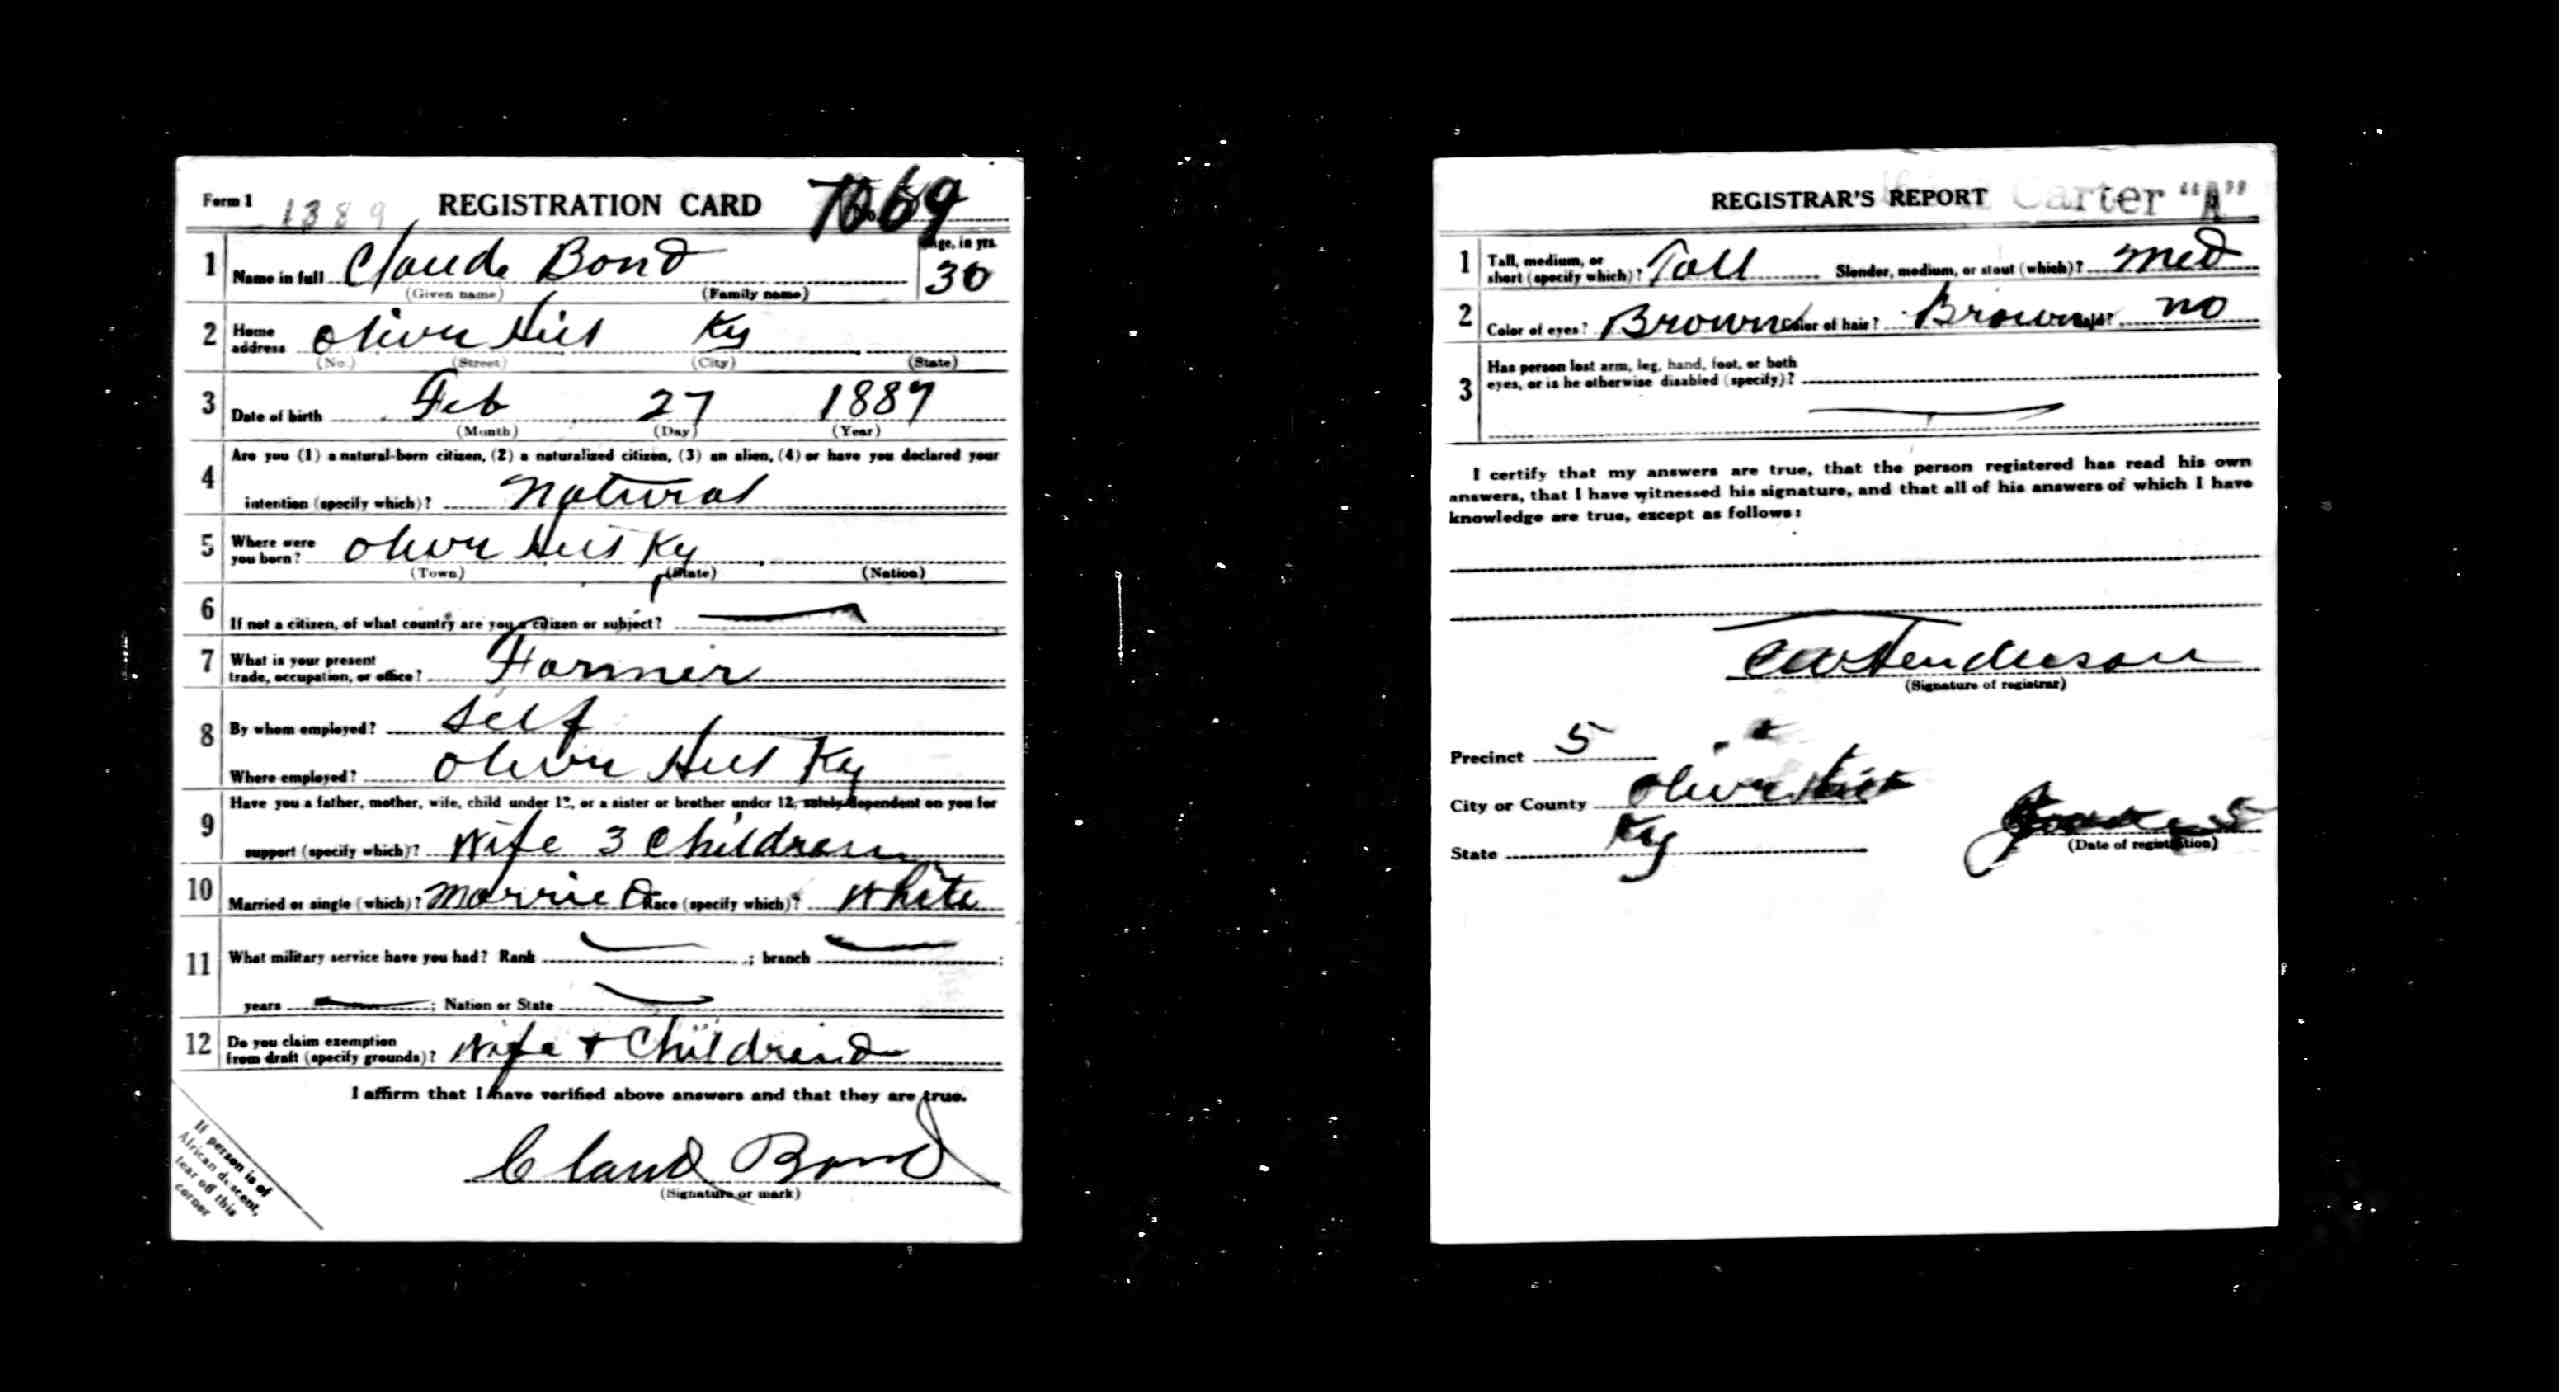 Form 1 1389 REGISTRATION CARD No. 69
1 Name in full Claude Bond Age, in yrs. 30
(Given name) (Family name)
2 Home address Olive Hill Ky
(No.) (Street) (City) (State)
3 Date of birth Feb 27 1887
(Month) (Day) (Year)
4 Are you (1) a natural-born citizen, (2) a naturalized citizen, (3) an alien, (4) or have you declared your
intention (specify which)? Natural
5 Where were you born? Olive Hill Ky
(Town) (State) (Nation)
6 If not a citizen, of what country are you a citizen or subject?
7 What is your present
trade, occupation, or office? Farmer
8 By whom employed? Self
Where employed? Olive Hill Ky
9 Have you a father, mother, wife, child under 12, or a sister or brother under 12, solely dependent on you for
support (specify which)? Wife 3 Children
10 Married or single (which)? Married Race (specify which)? White
11 What military service have you had? Rank ; branch ;
years ; Nation or State
12 Do you claim exemption
from draft (specify grounds)? Wife + Children
I affirm that I have verified above answers and that they are true.
Claud Bond
(Signature or mark)
If person is of
African descent,
tear off this
corner
REGISTRAR'S REPORT Carter "A"
1 Tall, medium, or
short (specify which)? Tall Slender, medium, or stout (which)? Med
2 Color of eyes? Brown Color of hair? Brown Bald? No
3 Has person lost arm, leg, hand, foot, or both
eyes, or is he otherwise disabled (specify)?
I certify that my answers are true, that the person registered has read his own
answers, that I have witnessed his signature, and that all of his answers of which I have
knowledge are true, except as follows:
CW Henderson
(Signature of registrar)
Precinct 5
City or County Olive Hill
State Ky June 5
(Date of registration)